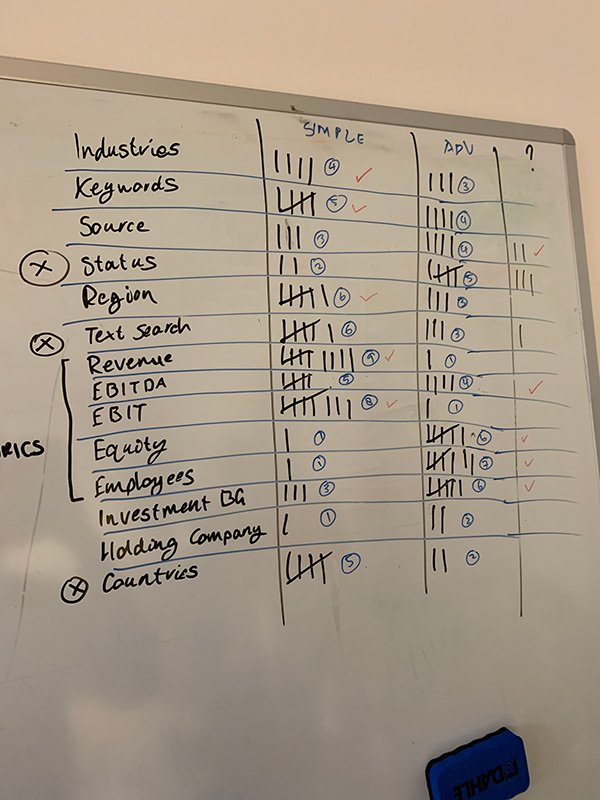 SIMPLE ADV ?
Industries 4 3
Keywords 5 4
Source 3 4
X Status 2 5
Region 6 3
X Text Search 6 3
Revenue 9 1
EBITDA 5 4
EBIT 8 1
RICS
Equity 1 6
Employees 1 7
Investment BG 3 6
Holding Company 1 2
X Countries 5 2
DAHLE